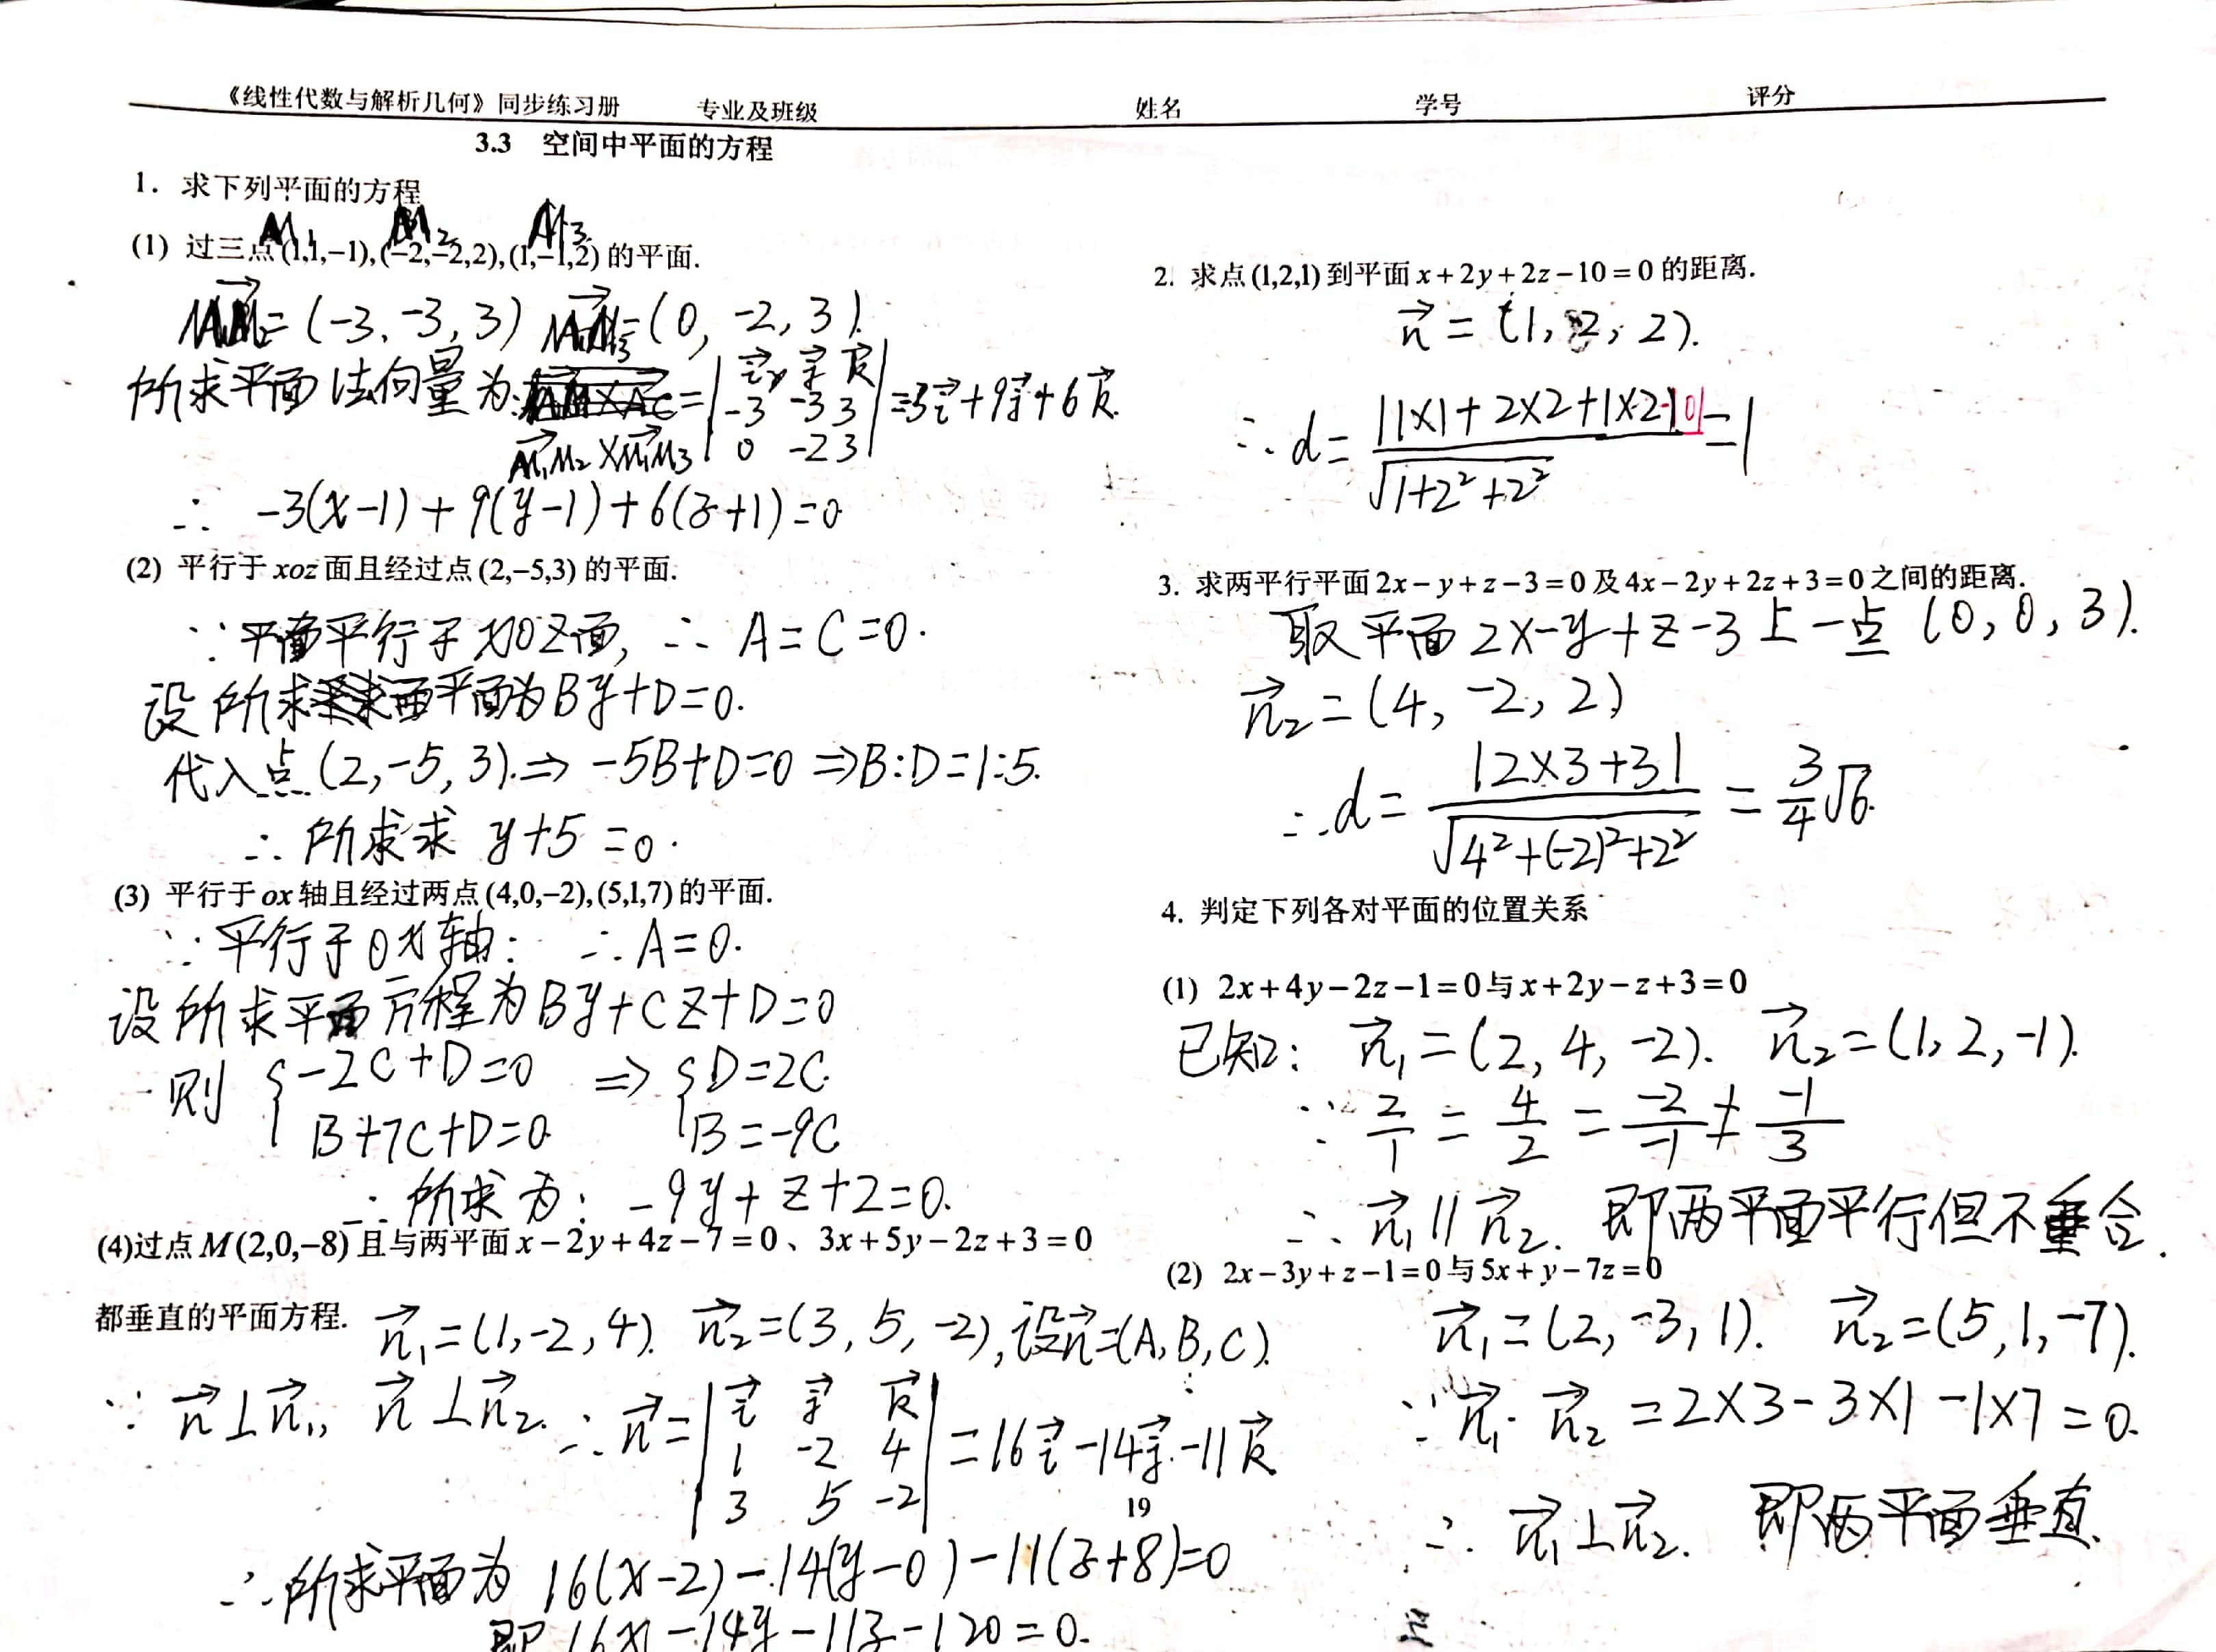 《线性代数与解析几何》同步练习册 专业及班级 姓名 学号 评分
3.3 空间中平面的方程
1. 求下列平面的方程
M₁ M₂ M₃
(1) 过三点(1,1,−1),(−2,−2,2),(1,−1,2)的平面.
M₁M₂=(-3,-3,3) M₁M₃=(0,-2,3).
所求平面法向量为: M₁M₂×M₁M₃ = |i j k; -3 -3 3; 0 -2 3| =-3i+9j+6k.
∴ -3(x-1)+9(y-1)+6(z+1)=0
(2) 平行于xoz面且经过点(2,−5,3)的平面.
∵平面平行于xoz面, ∴ A=C=0.
设所求平面为By+D=0.
代入点(2,-5,3).⇒ -5B+D=0 ⇒B:D=1:5.
∴ 所求求 y+5=0.
(3) 平行于ox轴且经过两点(4,0,−2),(5,1,7)的平面.
∵平行于ox轴: ∴A=0.
设所求平面方程为By+Cz+D=0
则 {-2C+D=0 ⇒ {D=2C.
B+7C+D=0. B=-9C
∴所求为: -9y+z+2=0.
(4)过点M(2,0,−8)且与两平面x−2y+4z−7=0、3x+5y−2z+3=0
都垂直的平面方程. n₁=(1,-2,4). n₂=(3,5,-2),设n=(A,B,C).
∵ n⊥n₁, n⊥n₂. ∴n=|i j k; 1 -2 4; 3 5 -2| =16i-14j-11k
∴所求平面为 16(x-2)-14(y-0)-11(z+8)=0
即 16x-14y-11z-120=0.
2. 求点(1,2,1)到平面x+2y+2z−10=0的距离.
n=(1,2,2).
∴ d= |1×1+2×2+1×2-10| / √(1+2²+2²) =1
3. 求两平行平面2x−y+z−3=0及4x−2y+2z+3=0之间的距离.
取平面2x-y+z-3上一点(0,0,3).
n₂=(4,-2,2)
∴d= |2×3+3| / √(4²+(-2)²+2²) = 3/4 √6.
4. 判定下列各对平面的位置关系
(1) 2x+4y−2z−1=0与x+2y−z+3=0
已知: n₁=(2,4,-2). n₂=(1,2,-1).
∵ 2/1 = 4/2 = -2/-1 ≠ -1/3
∴ n₁∥n₂. 即两平面平行但不重合.
(2) 2x−3y+z−1=0与5x+y−7z=0
n₁=(2,-3,1). n₂=(5,1,-7).
∵n₁·n₂=2×3-3×1-1×7=0.
∴ n₁⊥n₂. 即两平面垂直.
19